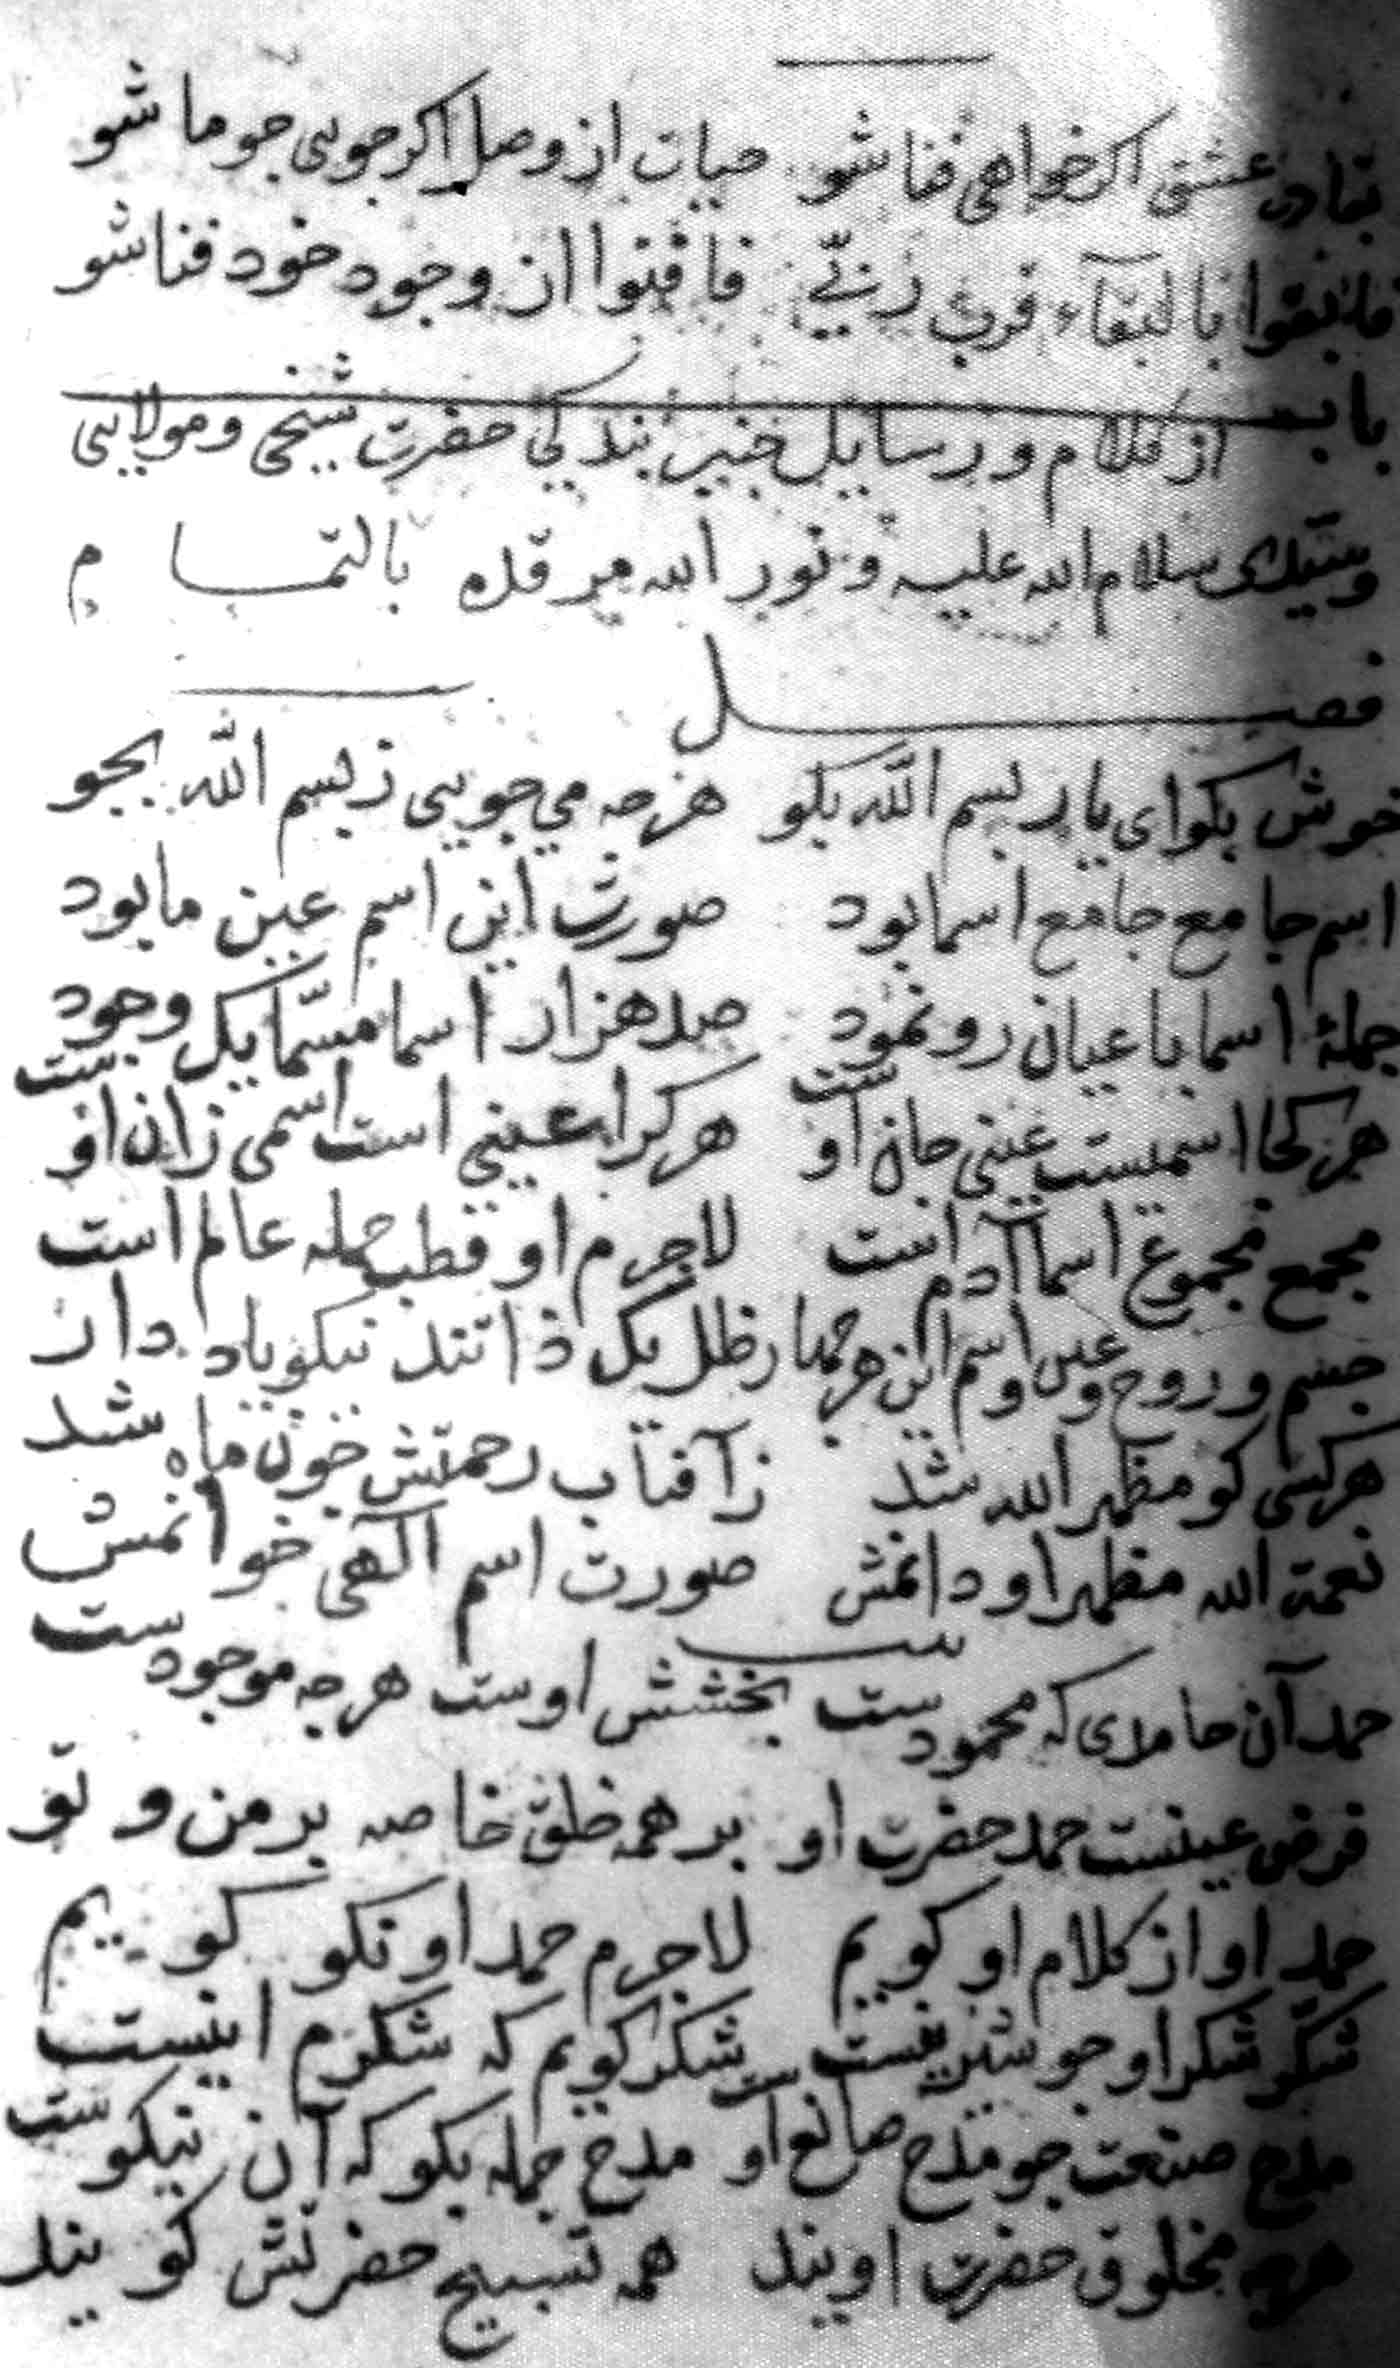 بقا در عشق اکر خواهی فنا شو حیات از وصل اکر جویی جو ما شو
فابقوا بالبقآء قرب ربّی فافنوا از وجود خود فنا شو
باب از کلام و رسایل بندکی حضرت شیخی و مولایی
و سیّدی سلام الله علیه و نور الله مرقده بالتمام
فصل
خوش بکو ای یار بسم الله بکو هرجه می جویی ز بسم الله بجو
اسم جامع جامع اسما بود صورت این اسم عین ما بود
جملۀ اسما باعیان رو نمود صد هزار اسما مسمّا یک وجود
هر کجا اسمیست عینی جان اوست هر کرا عینی است اسمی زان اوست
مجمع مجموع اسما آدم است لاجرم او قطب جمله عالم است
جسم و روح و عین و اسم این هر جهار ظل یک ذاتند نیکو یاد دار
هر کسی کو مظهر الله شد ز آفتاب رحمتش جون ماه شد
نعمة الله مظهر او دانمش صورت اسم آلهی خوانمش
حمد آن حامدی که محمودست بخشش اوست هرجه موجودست
فرض عینست حمد حضرت او بر همه خلق خاصه بر من و تو
حمد او از کلام او کویم لاجرم حمد او نکو کویم
شکر شکر او جو شیرینست شکر کویم که شکرم اینست
مدح صنعت جو مدح صانع اوست مدح جمله بکو که آن نیکوست
هرجه مخلوق حضرت اویند همه تسبیح حضرتش کویند